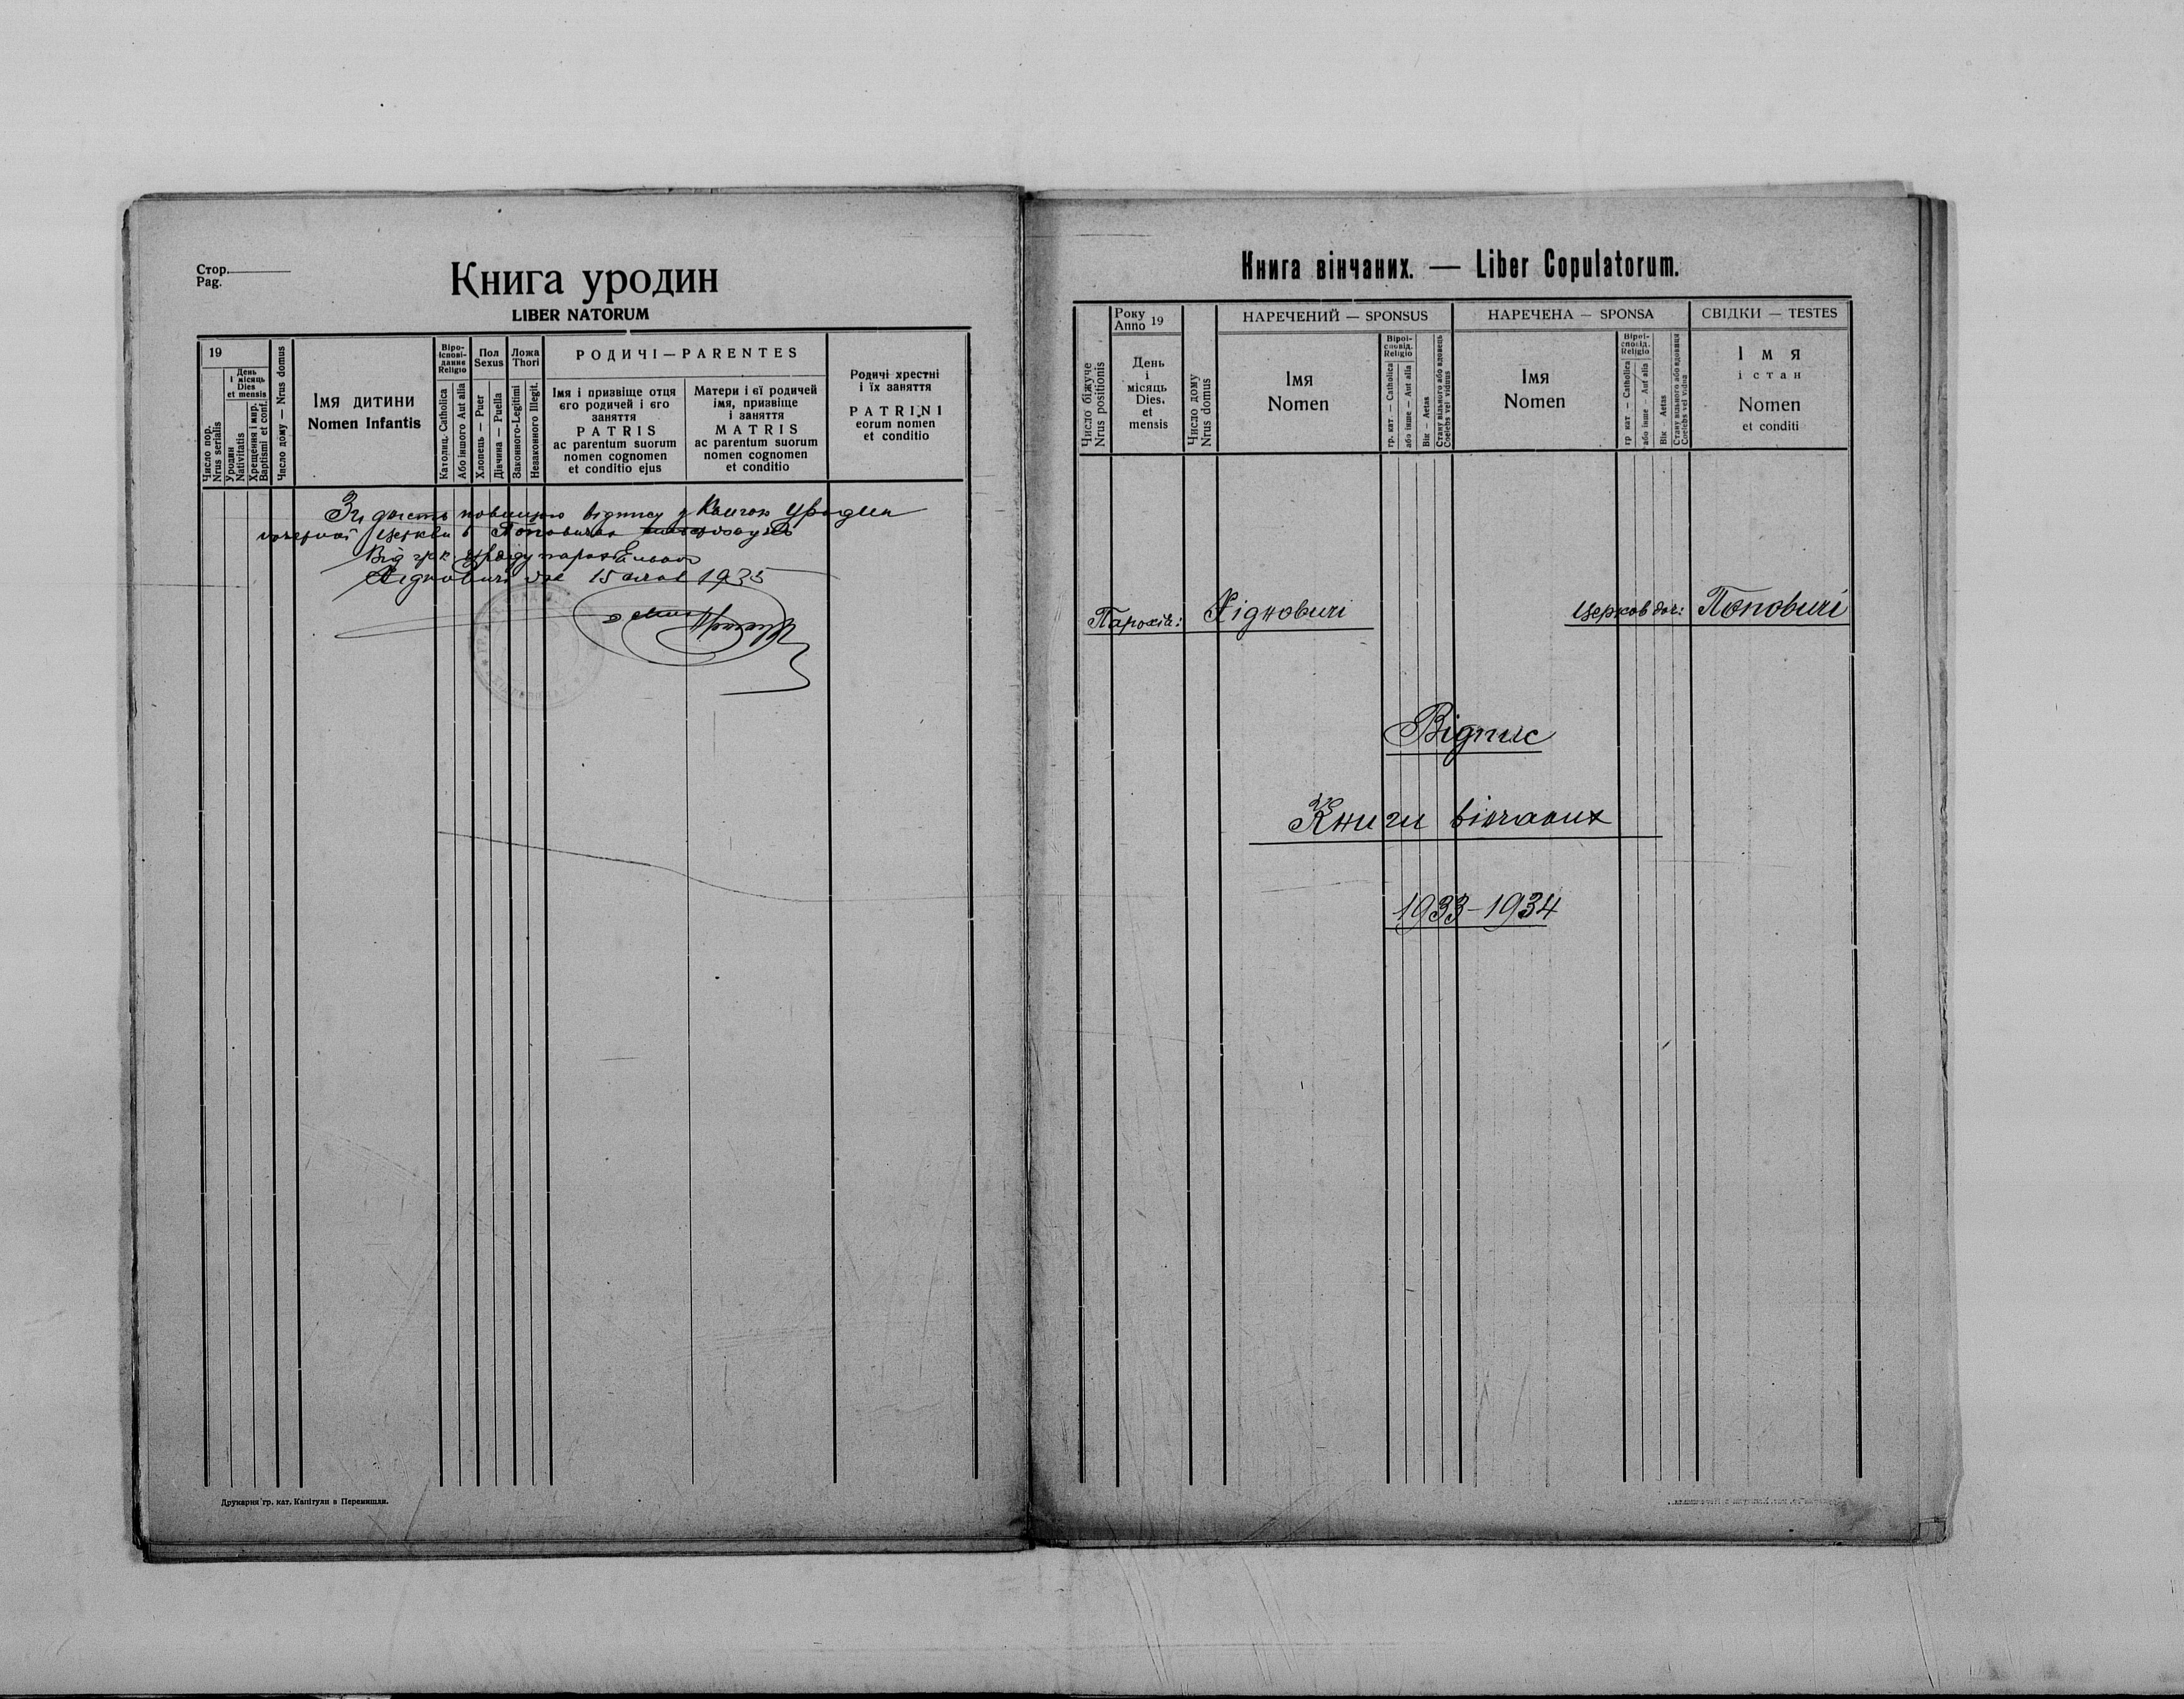 Стор.
Pag.
Книга уродин
LIBER NATORUM
19
Число пор.
Nrus serialis
День
і місяць
Dies
et mensis
Уродин
Nativitatis
Хрещення і мир.
Baptismi et conf.
Число дому — Nrus domus
Імя дитини
Nomen Infantis
Віро-
ісповідання
Religio
Католиц. Catholica
Або іншого Aut alia
Пол
Sexus
Хлопець — Puer
Дівчина — Puella
Ложа
Thori
Законного-Legitimi
Незаконного Illegit.
РОДИЧІ — PARENTES
Імя і призвіще отця
єго родичей і єго
заняття
PATRIS
ac parentum suorum
nomen cognomen
et conditio ejus
Матери і єї родичей
імя, призвіще
і заняття
MATRIS
ac parentum suorum
nomen cognomen
et conditio
Родичі хрестні
і їх заняття
PATRINI
eorum nomen
et conditio
Згідність повищого відпису з Книгою уродин
дочерної церкви в Поповичах
Від гр. к. Уряду парох
Хідновичі дня 15 1935
Друкарня гр. кат. Капітули в Перемишли.
Книга вінчаних. — Liber Copulatorum.
Число біжуче
Nrus positionis
Року
Anno 19
День
і
місяць
Dies.
et
mensis
Число дому
Nrus domus
НАРЕЧЕНИЙ — SPONSUS
Імя
Nomen
Віроі-
сповід.
Religio
гр. кат — Catholica
або інше — Aut alia
Вік — Aetas
Стану вільного або вдовець
Coelebs vel viduus
НАРЕЧЕНА — SPONSA
Імя
Nomen
Віроі-
сповід.
Religio
гр кат — Catholica
або інше — Aut alia
Вік — Aetas
Стану вільного або вдовиця
Coelebs vel vidua
СВІДКИ — TESTES
Імя
і стан
Nomen
et conditi
Парохія: Хідновичі церков доч: Поповичі
Відпис
Книги вінчаних
1933-1934